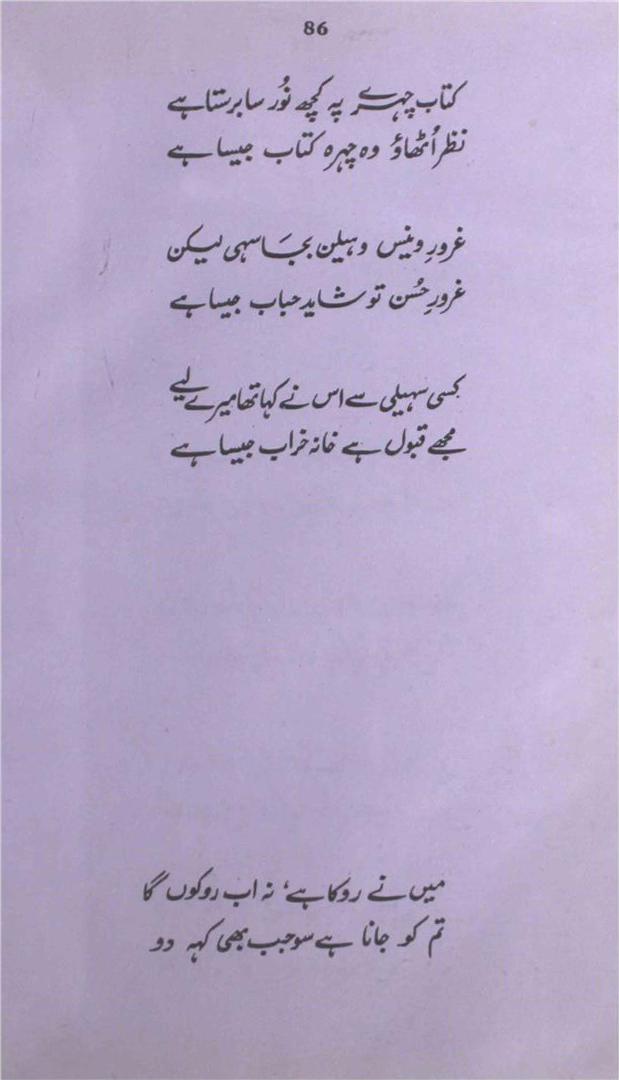 86
کتاب چہرے پہ کچھ نُور سا برستا ہے
نظر اُٹھاؤ وہ چہرہ کتاب جیسا ہے
غرورِ وینس و ہیلن بجَا سہی لیکن
غرورِ حُسن تو شاید حباب جیسا ہے
کسی سہیلی سے اس نے کہا تھا میرے لیے
مجھے قبول ہے خانہ خراب جیسا ہے
میں نے روکا ہے، نہ اب روکوں گا
تم کو جانا ہے سو جب بھی کہہ دو